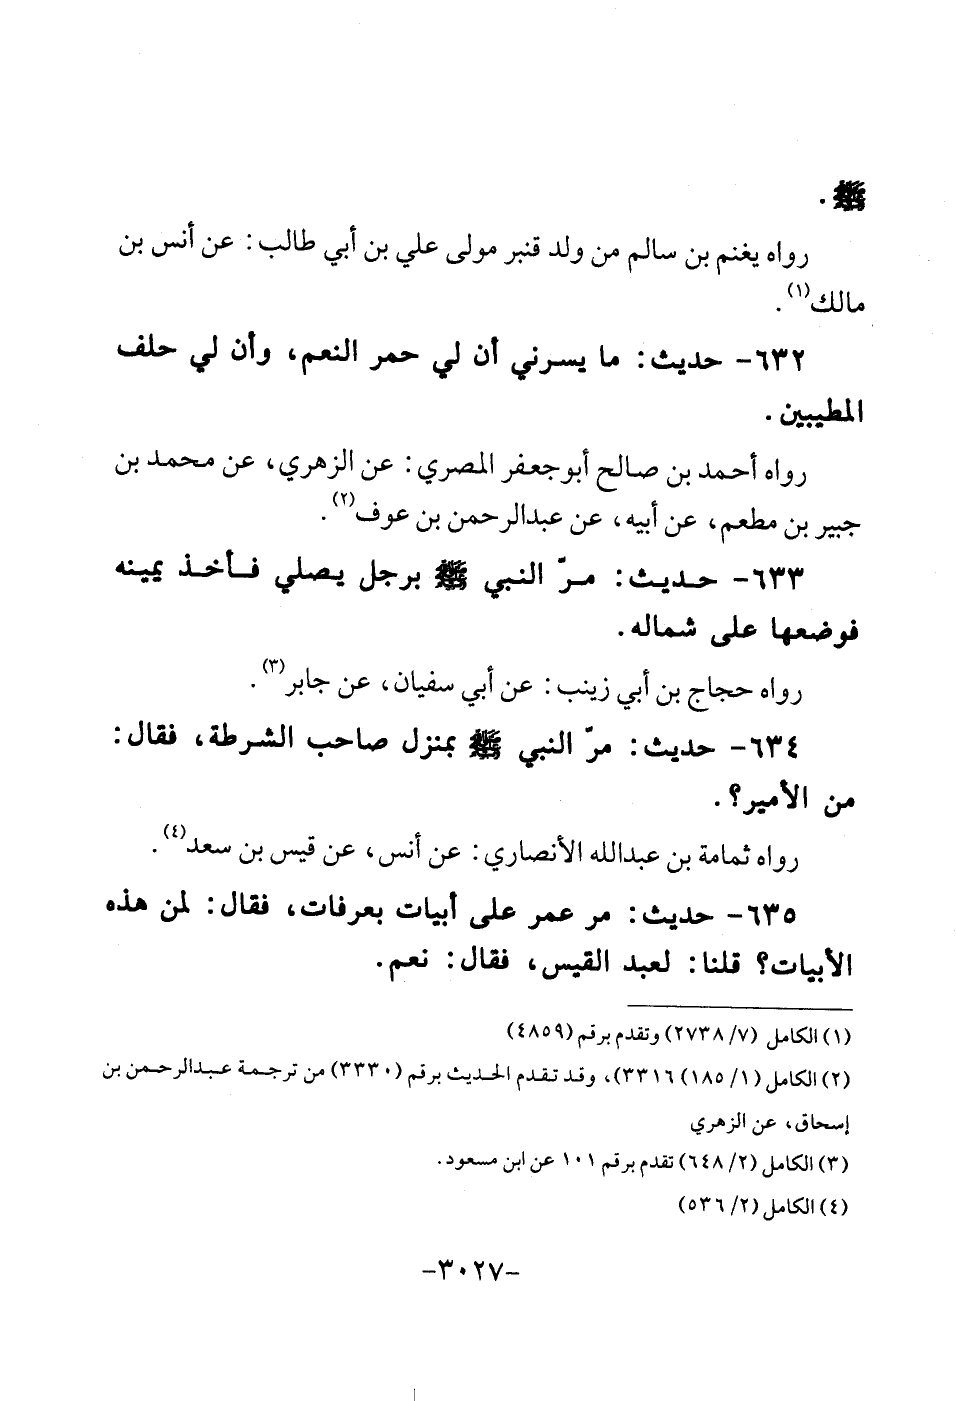 ﷺ .
رواه يغنم بن سالم من ولد قنبر مولى علي بن أبي طالب: عن أنس بن
مالك(١).
٦٣٢- حديث: ما يسرني أن لي حمر النعم، وأن لي حلف
المطيبين.
رواه أحمد بن صالح أبوجعفر المصري: عن الزهري، عن محمد بن
جبير بن مطعم، عن أبيه، عن عبدالرحمن بن عوف(٢).
٦٣٣- حديث: مرّ النبي ﷺ برجل يصلي فأخذ يمينه
فوضعها على شماله.
رواه حجاج بن أبي زينب: عن أبي سفيان، عن جابر(٣).
٦٣٤- حديث: مرّ النبي ﷺ بمنزل صاحب الشرطة، فقال:
من الأمير؟.
رواه ثمامة بن عبدالله الأنصاري: عن أنس، عن قيس بن سعد(٤).
٦٣٥- حديث: مر عمر على أبيات بعرفات، فقال: لمن هذه
الأبيات؟ قلنا: لعبد القيس، فقال: نعم.
(١) الكامل (٧/ ٢٧٣٨) وتقدم برقم (٤٨٥٩)
(٢) الكامل (١/ ١٨٥) ٣٣١٦)، وقد تقدم الحديث برقم (٣٣٣٠) من ترجمة عبدالرحمن بن
إسحاق، عن الزهري
(٣) الكامل (٢/ ٦٤٨) تقدم برقم ١٠١ عن ابن مسعود.
(٤) الكامل (٢/ ٥٣٦)
-٣٠٢٧-